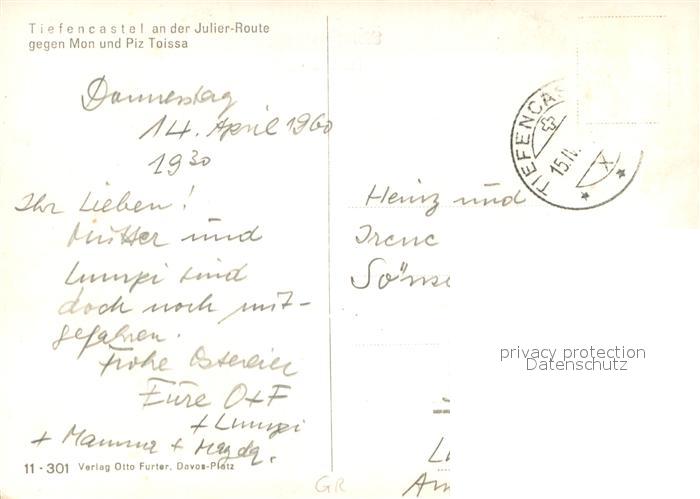 Tiefencastel an der Julier-Route
gegen Mon und Piz Toissa
Donnerstag
14. April 1960
19 30
Ihr Lieben!
Mutter und
Lumpi sind
doch noch mit-
gefahren.
Frohe Ostereier
Eure O+F
+ Lumpi
+ Mamma + Magda.
11-301 Verlag Otto Furter, Davos-Platz
GR
TIEFENCAS
15.IV.
X
Heinz und
Irene
privacy protection
Datenschutz